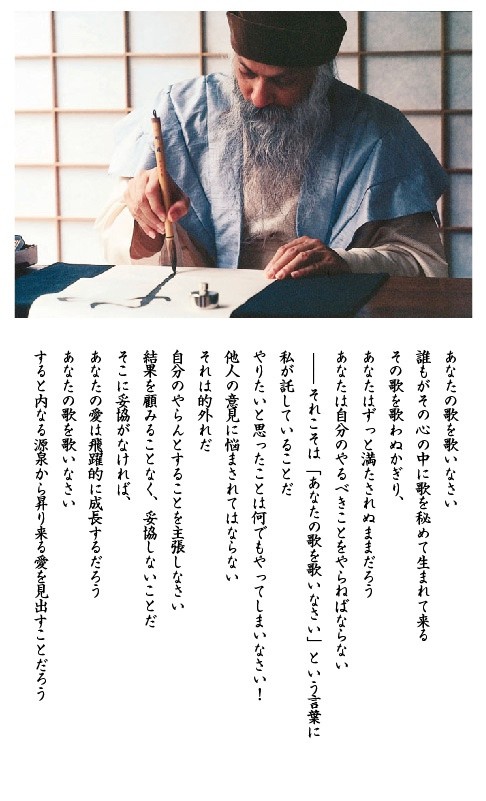 あなたの歌を歌いなさい
誰もがその心の中に歌を秘めて生まれて来る
その歌を歌わぬかぎり、
あなたはずっと満たされぬままだろう
あなたは自分のやるべきことをやらねばならない
――それこそは「あなたの歌を歌いなさい」という言葉に
私が託していることだ
やりたいと思ったことは何でもやってしまいなさい！
他人の意見に悩まされてはならない
それは的外れだ
自分のやらんとすることを主張しなさい
結果を顧みることなく、妥協しないことだ
そこに妥協がなければ、
あなたの愛は飛躍的に成長するだろう
あなたの歌を歌いなさい
すると内なる源泉から昇り来る愛を見出すことだろう